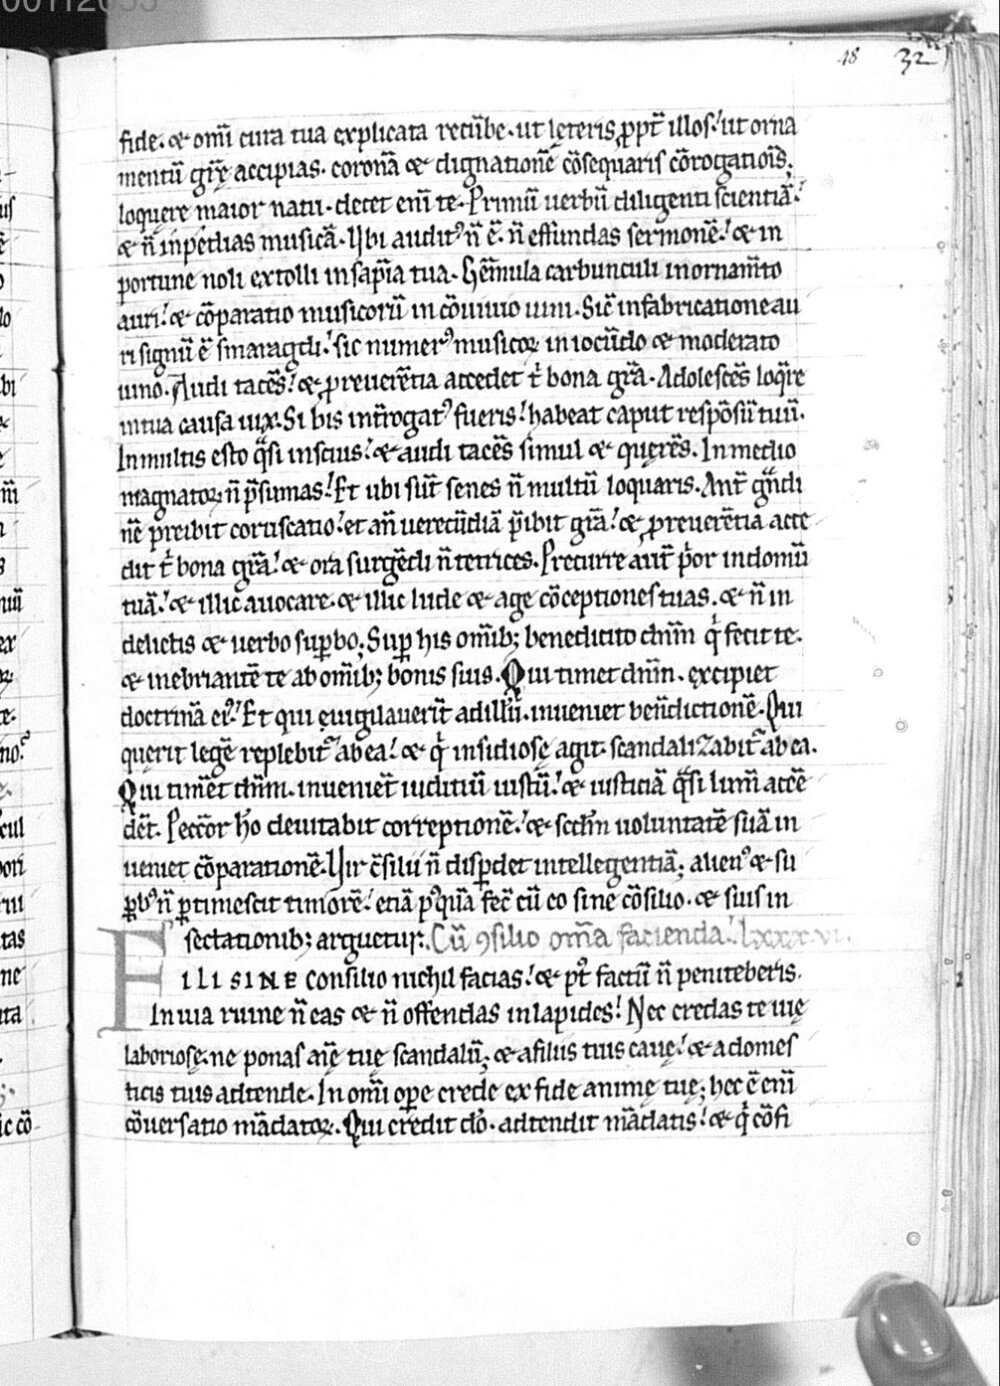 48 32
fide. & om̄i cura tua explicata recūbe. ut lęteris ꝓpt̄ illos.' ut orna
mentū gr̄ę accipias. coronā & dignationē cōsequaris cōrogatiōis.
loquere maior natu. decet eni̅ te. Primū uerbū diligenti scientiā.'
& n̄ inpedias musicā. Ubi audit᷒ n̄ ē. n̄ effundas sermonē.' & in
portune noli extolli in sap̄ia tua. Gēmula carbunculi in ornam̄to
auri.' & cōparatio musicorū in cōuiuio uini. Sic̄ in fabricatione au
ri signū ē smaragdi.' sic numer᷒ musicoꝝ in iocūdo & moderato
uino. Audi tacēs.' & ꝓ reuerētia accedet t̄ bona gr̄a. Adolescēs loqͣre
in tua causa uix. Si bis int̄rogat᷒ fueris.' habeat caput respōsū tuū.
In multis esto qͣsi inscius.' & audi tacēs simul & quęrēs. In medio
magnatoꝝ n̄ p̄sumas.' Et ubi sūt senes n̄ multū loquaris. Ant̄ gͣndi
nē preibit coruscatio.' et an̄ uerecūdiā p̄ibit gr̄a.' & ꝓ reuerētia acce
dit t̄ bona gr̄a.' & ora surgēdi n̄ te trices. Precurre aut̄ pͥor in domū
tuā.' & illic auocare. & illic lude & age cōceptiones tuas. & n̄ in
delictis & uerbo suꝑbo; Suꝑ his om̄ib; benedicito dn̄m qͥ fecit te.
& inebriantē te ab om̄ib; bonis suis. Qui timet dn̄m. excipiet
doctrinā ei᷒.' Et qui euigilauerīt ad illū. inueniet ben̄dictionē. Qui
quęrit legē replebit᷒ ab ea.' & qͥ insidiosę agit. scandalizabit᷒ ab ea.
Qui timēt dn̄m. inueniēt iuditiū iustū.' & iusticiā qͣsi lum̄ accē
dēt. Peccōr hō deuitabit correptionē.' & scdm̄ uoluntatē suā in
ueniet cōparationē. Uir c̄silii n̄ disꝑdet intellegentiā; alien᷒ & su
ꝑb᷒ n̄ ꝑtimescit timorē.' etiā p᷒quā fec̄ cū eo sine cōsilio. & suis in
sectationib; arguetur. Cū ꝯsilio om̄a facienda.' lxxxvi.
FILI SINE consilio nichil facias.' & p᷒t factū n̄ peniteberis.
In uia ruine n̄ eas & n̄ offendas in lapides.' Nec credas te uię
laboriosę. ne ponas aīę tuę scandalū; & a filiis tuis caue.' & a domes
ticis tuis adtende. In om̄i oꝑe crede ex fide animę tuę; hec ē eni̅
cōuersatio mādatoꝝ. Qui credit dō. adtendit mādatis.' & qͥ cōfi